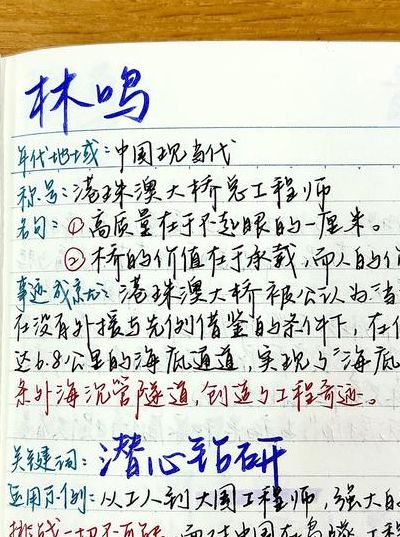 林鸣
年代地域:中国现当代
称号:港珠澳大桥总工程师
名句:①高质量在于不起眼的一厘米。
②桥的价值在于承载,而人的价
事迹成就:港珠澳大桥被公认为"当
在没有外援与先例借鉴的条件下,在
达6.8公里的海底通道,实现了海底
条外海沉管隧道,创造了工程奇迹。
关键词:潜心钻研
运用示例:从工人到大国工程师,强大的
挑战一切不可能